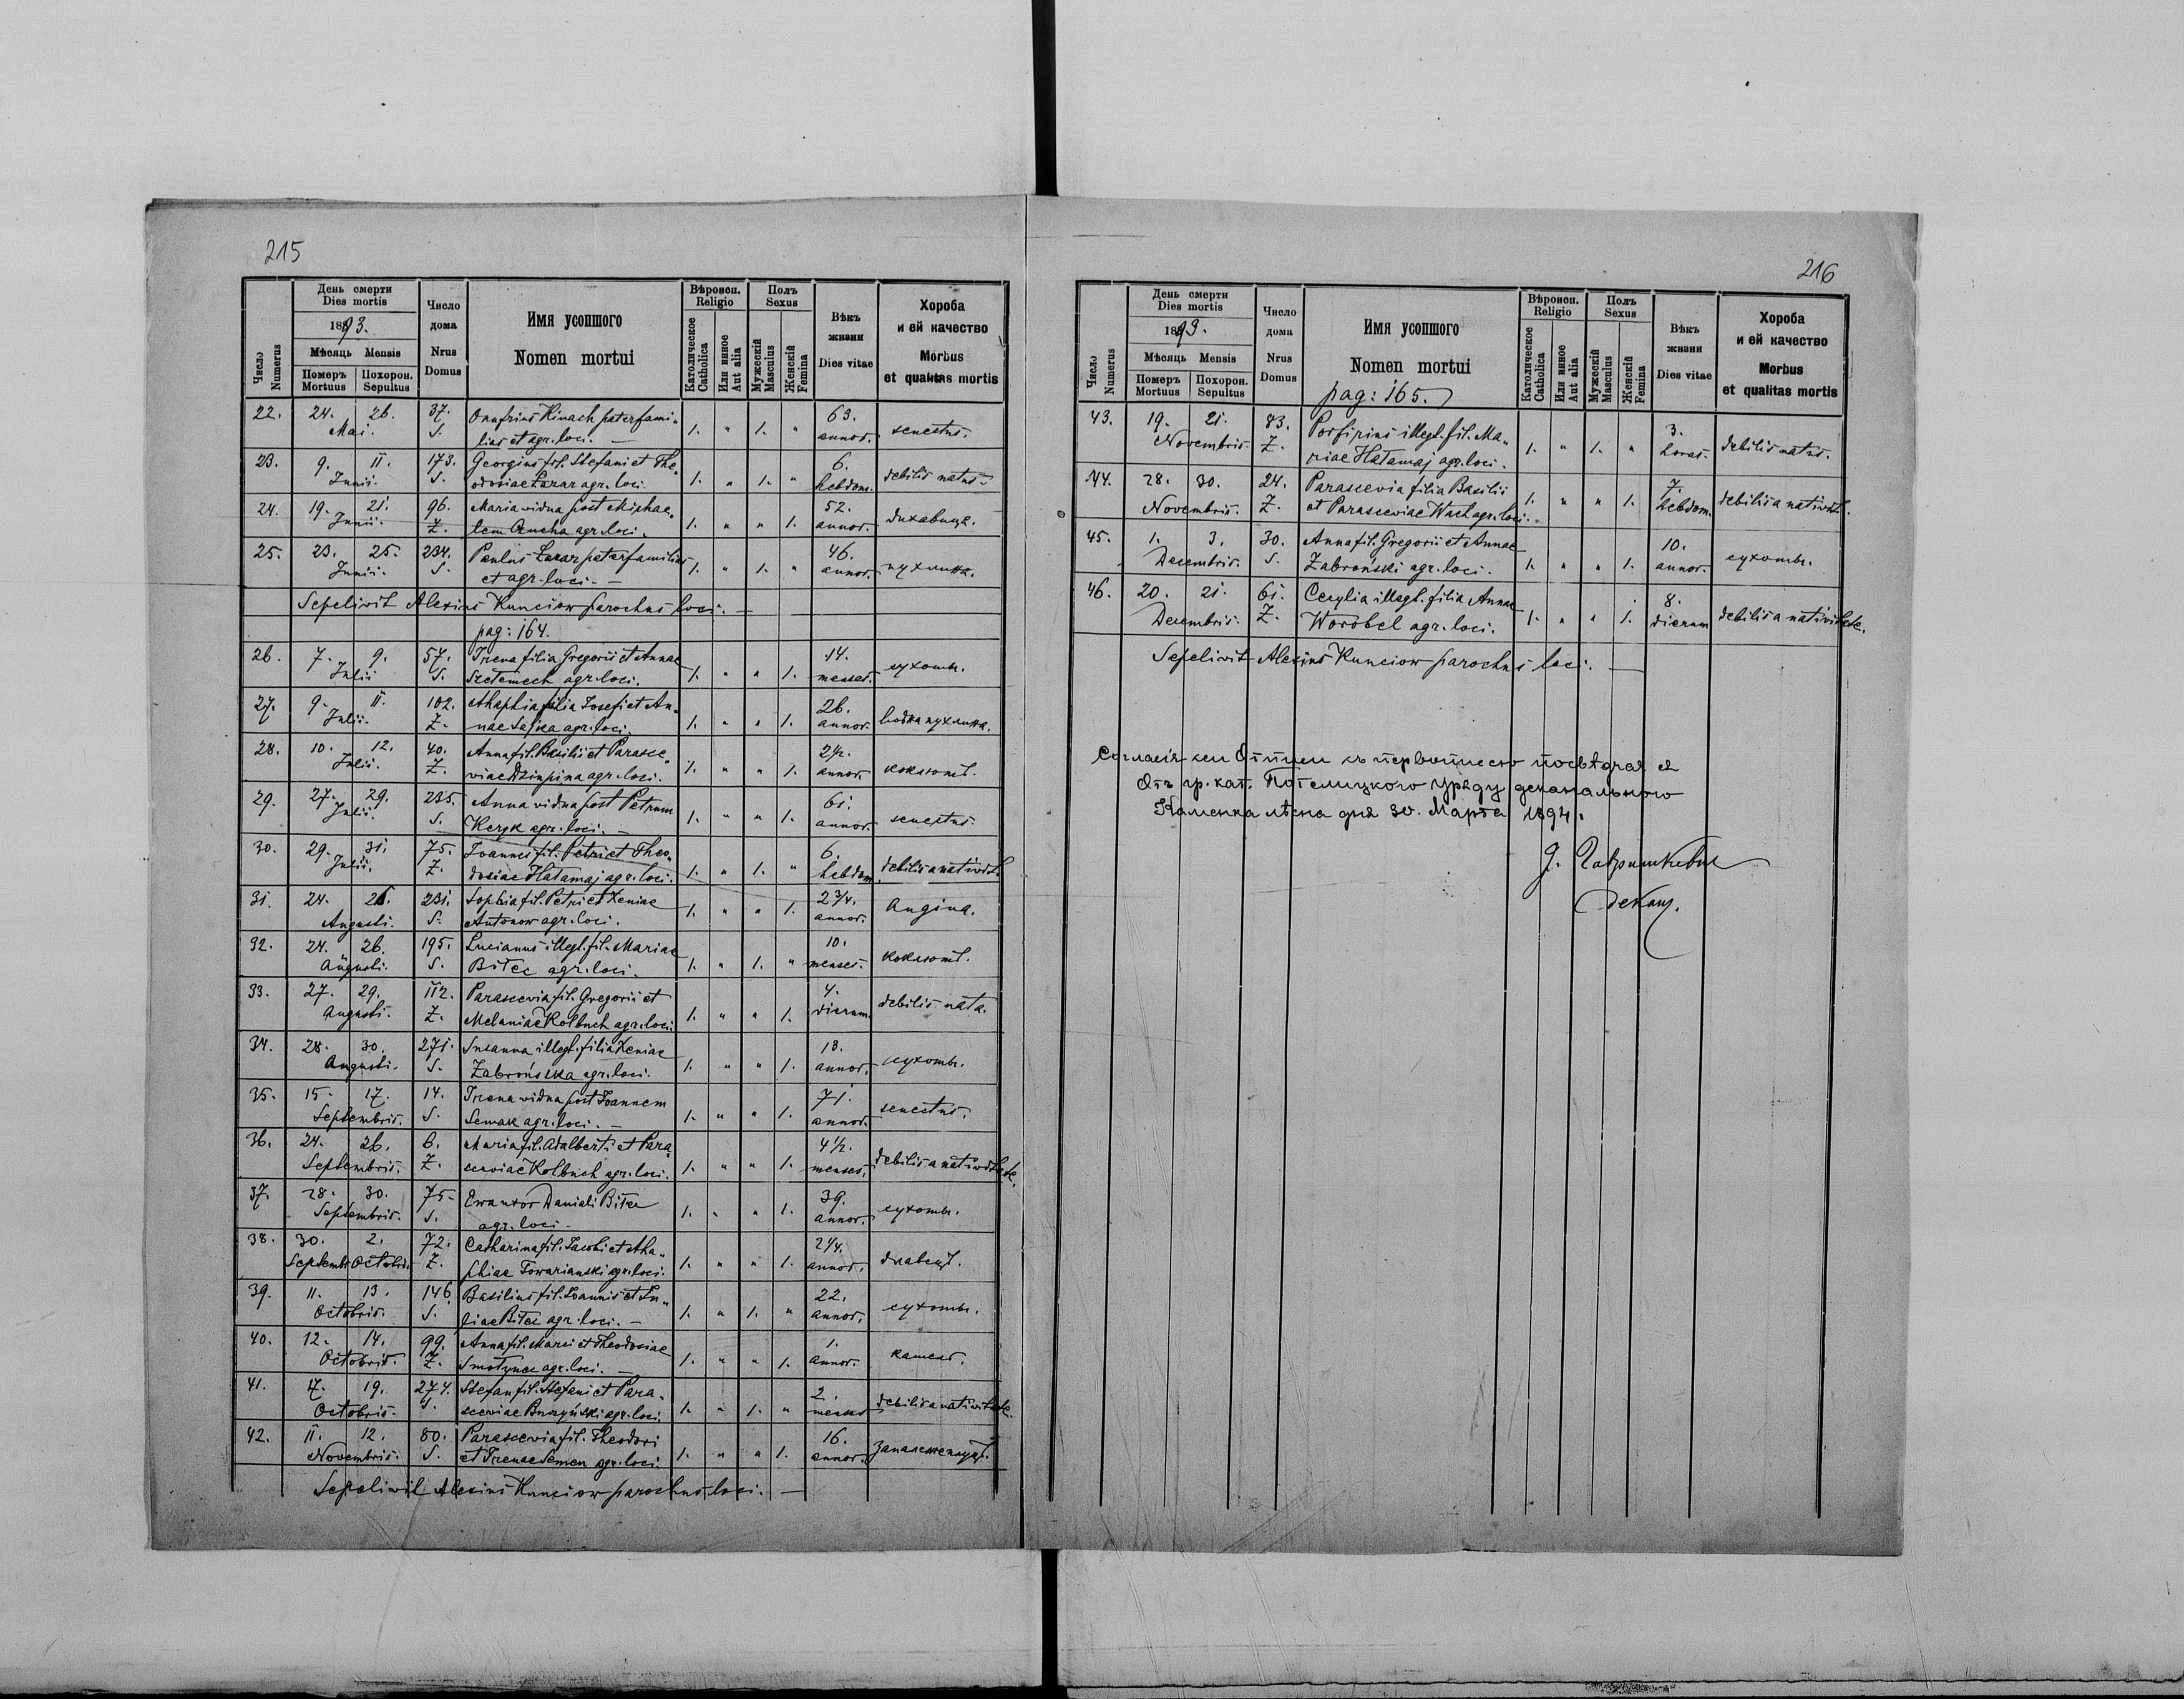 215
Число Numerus
День смерти
Dies mortis
1893.
Мѣсяць Mensis
Померъ Mortuus
Похорон. Sepultus
Число дома
Nrus Domus
Имя усопшого
Nomen mortui
Вѣроисп.
Religio
Католическое Catholica
Или инное Aut alia
Полъ
Sexus
Мужескій Masculus
Женскій Femina
Вѣкъ жизни
Dies vitae
Хороба
и ей качество
Morbus
et qualitas mortis
22. 24. 26. 37. Onufrius Kinach paterfami„ 63.
Mai. S. lias et agr. loci. — 1. „ 1. „ annor. senectus.
23. 9. 11. 173. Georgius fil. Stefani et The„ 6.
Junii. S. odosiae Łazar agr. loci. 1. „ 1. „ hebdom. debilis natus.
24. 19. 21. 96. Maria vidua post 52.
Junii. Z. agr. loci. 1. „ „ 1. annor. духавица.
25. 23. 25. 234. Paulus Łazar paterfamilias 46.
Junii. S. et agr. loci. — 1. „ 1. „ annor. пухлина.
Sepelivit Alexius Kunciow parochus loci. —
pag: 164.
26. 7. 9. 57. Irena filia Gregorii et Annae 14.
Julii S. agr. loci. 1. „ „ 1. menses. сухоты.
27. 9. 11. 102. Ahaphia filia Josefi et An„ 26.
Julii. Z. nae agr. loci. 1. „ „ 1. annor. водна пухлина.
28. 10. 12. 40. Anna fil. Basilii et Parasce„ 2½.
Julii. Z. viae agr. loci. 1. „ „ 1. annor. коклюшъ.
29. 27. 29. 235. Anna vidua post Petrum 61.
Julii. S. agr. loci. — 1. „ „ 1. annor. senectus.
30. 29. 31. 75. Joannes fil. Petri et Theo„ 6.
Julii. Z. dosiae Hałamaj agr. loci. 1. „ 1. „ hebdom. debilis a nativit.
31. 24. 26. 231. Sophia fil. Petri et Xeniae 2¾.
Augusti. S. Antonow agr. loci. 1. „ „ 1. annor. Angina.
32. 24. 26. 195. Lucianus illegt. fil. Mariae 10.
Augusti. S. Biłec agr. loci. 1. „ 1. „ menses. коклюшъ.
33. 27. 29. 112. Parascevia fil. Gregorii et 4.
Augusti. Z. Melaniae Kolbuch agr. loci. 1. „ „ 1. dierum. debilis nata.
34. 28. 30. 271. Susanna illegt. filia Xeniae 13.
Augusti. S. Zabrońska agr. loci. 1. „ „ 1. annor. сухоты.
35. 15. 17. 14. Irena vidua post Joannem 71.
Septembris. S. Semak agr. loci. — 1. „ „ 1. annor. senectus.
36. 24. 26. 6. Maria fil. Adalberti et Para„ 4½.
Septembris. Z. sceviae Kolbuch agr. loci. 1. „ „ 1. menses. debilis a nativitate.
37. 28. 30. 75. Ewa uxor Danieli Biłec 39.
Septembris. S. agr. loci. 1. „ „ 1. annor. сухоты.
38. 30. 2. 72. Catharina fil. Jacobi et Aha„ 2¼.
Septembr. Octobris. Z. phiae Towarianski agr. loci. 1. „ „ 1. annor. давецъ.
39. 11. 13. 146. Basilius fil. Joannis et Ju„ 22.
Octobris. S. liae Biłec agr. loci. — 1. „ 1. „ annor. сухоты.
40. 12. 14. 99. Anna fil. Marci et Theodosiae 1.
Octobris. Z. Smołynec agr. loci. — 1. „ „ 1. annor. кашель.
41. 17. 19. 274. Stefan fil. Stefani et Para„ 2.
Octobris. S. sceviae Buczyński agr. loci. 1. „ 1. „ menses debilis a nativitate.
42. 11. 12. 80. Parascevia fil. Theodori 16.
Novembris. S. et Irenae Semen agr. loci. 1. „ „ 1. annor.
Sepelivit Alexius Kunciow parochus loci. —
216
Число Numerus
День смерти
Dies mortis
1893.
Мѣсяць Mensis
Померъ Mortuus
Похорон. Sepultus
Число дома
Nrus Domus
Имя усопшого
Nomen mortui
pag: 165.
Вѣроисп.
Religio
Католическое Catholica
Или инное Aut alia
Полъ
Sexus
Мужескій Masculus
Женскій Femina
Вѣкъ жизни
Dies vitae
Хороба
и ей качество
Morbus
et qualitas mortis
43. 19. 21. 83. Porfirius illegt. fil. Ma„ 3.
Novembris. Z. riae Hałamaj agr. loci. 1. „ 1. „ horas. debilis natus.
44. 28. 30. 24. Parascevia filia Basilii 7.
Novembris. Z. et Parasceviae Wach agr. loci. 1. „ „ 1. hebdom. debilis a nativit.
45. 1. 3. 30. Anna fil. Gregorii et Annae 10.
Decembris. S. Zabroński agr. loci. 1. „ „ 1. annor. сухоты.
46. 20. 21. 61. Cecylia illegt. filia Annae 8.
Decembris. Z. Worobel agr. loci. 1. „ „ 1. dierum debilis a nativitate.
Sepelivit Alexius Kunciow parochus loci. —
съ первописею посвѣдчае ся
Отъ гр. кат. Потелицкого уряду деканального
Каменка лѣсна дня 30. Марта 1894.
декан.